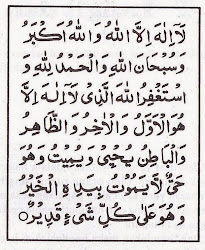 لَآ اِلٰهَ اِلَّا اللهُ وَاللهُ اَكْبَرُ
وَسُبْحَانَ اللهِ وَالْحَمْدُ لِلّٰهِ وَ
اسْتَغْفِرُ اللهَ الَّذِىْ لَآ اِلٰهَ اِلَّا
هُوَ الْاَوَّلُ وَالْاٰخِرُ وَالظَّاهِرُ
وَالْبَاطِنُ يُحْيِىْ وَيُمِيْتُ وَهُوَ
حَىٌّ لَّا يَمُوْتُ بِيَدِهِ الْخَيْرُ
وَهُوَ عَلٰى كُلِّ شَىْءٍ قَدِيْرٌ○